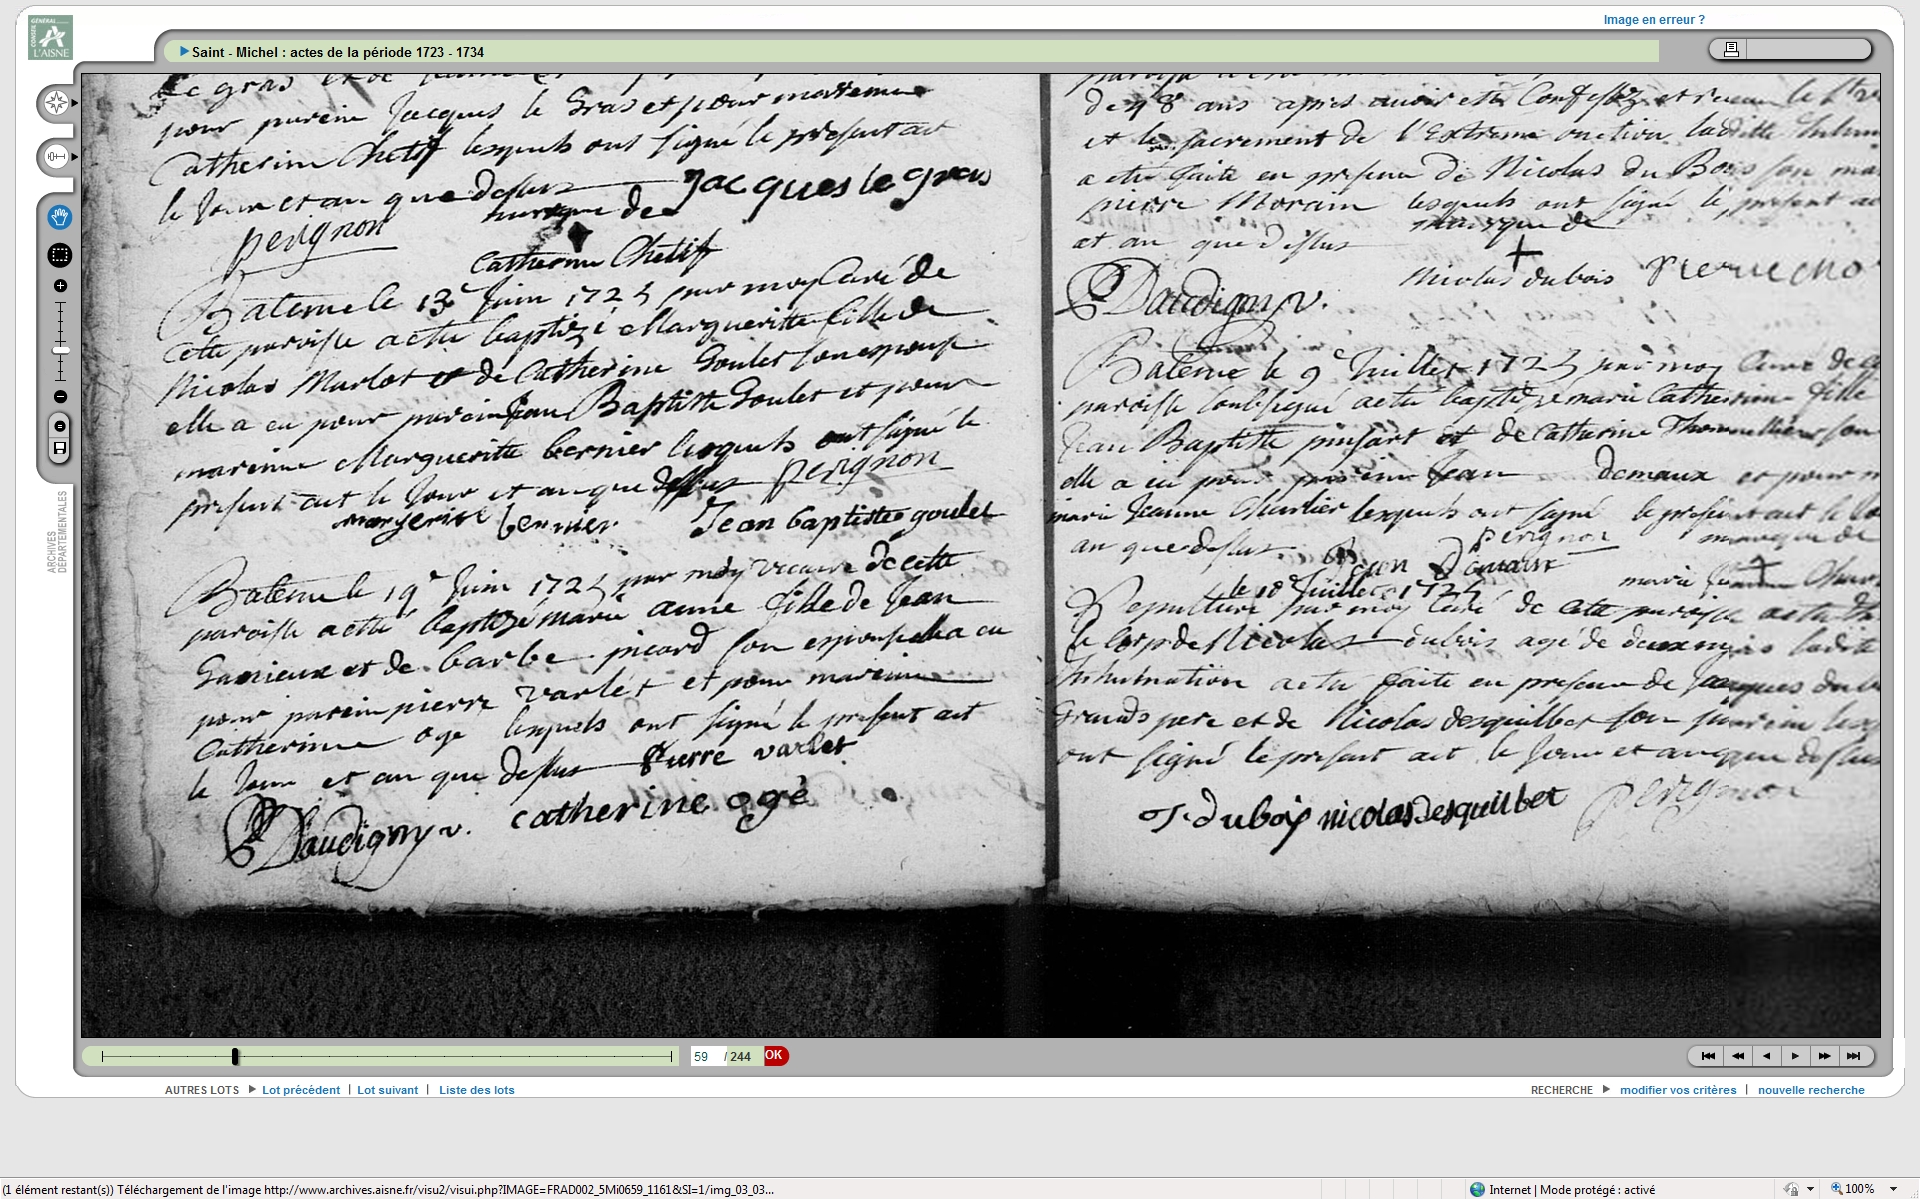 Image en erreur ?
GÉNÉRAL
CONSEIL
L'AISNE
Saint - Michel : actes de la période 1723 - 1734
pour parein jacques le Gras et pour mareinne
Catherine Chetif lesquels ont signé le present act
le Jour et an que dessus
marque de Jacques le gras
perignon
Catherinne Chetif
Bateme le 13e Juin 1725 par moy Curé de
Cette paroisse a esté baptizé Margueritte fille de
Nicolas Marlot et de Catherine Goulet son espouse
elle a eu pour parein Jean Baptiste Goulet et pour
mareinne Margueritte bernier lesquels ont signé le
present act le Jour et an que dessus perignon
margeritte bernier Jean baptiste goulet
Bateme le 19e Juin 1725 par moy vicaire de cette
paroisse a esté baptizé marie anne fille de Jean
et de barbe picard son espouse elle a eu
pour parein pierre varlet et pour mareinne
Catherinne oge lesquels ont signé le present act
le Jour et an que dessus Pierre varlet
Daudigny v. catherine ogé
de 48 ans apres avoir esté Confessez et receu le
et le sacrement de l'Extreme onction laditte
a esté faite en presence de Nicolas du Bois son
pierre Morain lesquels ont signé le present
et an que dessus marque de
Nicolas dubois Pierre mo
Daudigny v.
Bateme le 9e Juillet 1725 par moy Curé de
paroisse soubsigné a esté baptizé marie Catherinne fille
Jean Baptiste pinsart et de Catherine son
elle a eu pour parein Jean demaux et pour
marie Jeanne Charlier lesquels ont signé le present act le
an que dessus perignon marque de
Jean Demaux marie
le 10e Juillet 1725
Sepulture par moy Curé de Cette paroisse a esté
le Corp de Nicolas dubois agé de deux mois ladite
Inhumation a esté faite en presence de Jacques
Grand pere et de Nicolas desquilbet son parein
ont signé le present act le Jour et an que dessus
J. dubois nicolas desquilbet perignon
ARCHIVES
DÉPARTEMENTALES
59 / 244 OK
AUTRES LOTS Lot précédent | Lot suivant | Liste des lots
RECHERCHE modifier vos critères | nouvelle recherche
(1 élément restant(s)) Téléchargement de l'image http://www.archives.aisne.fr/visu2/visui.php?IMAGE=FRAD002_5Mi0659_1161&SI=1/img_03_03...
Internet | Mode protégé : activé
100%